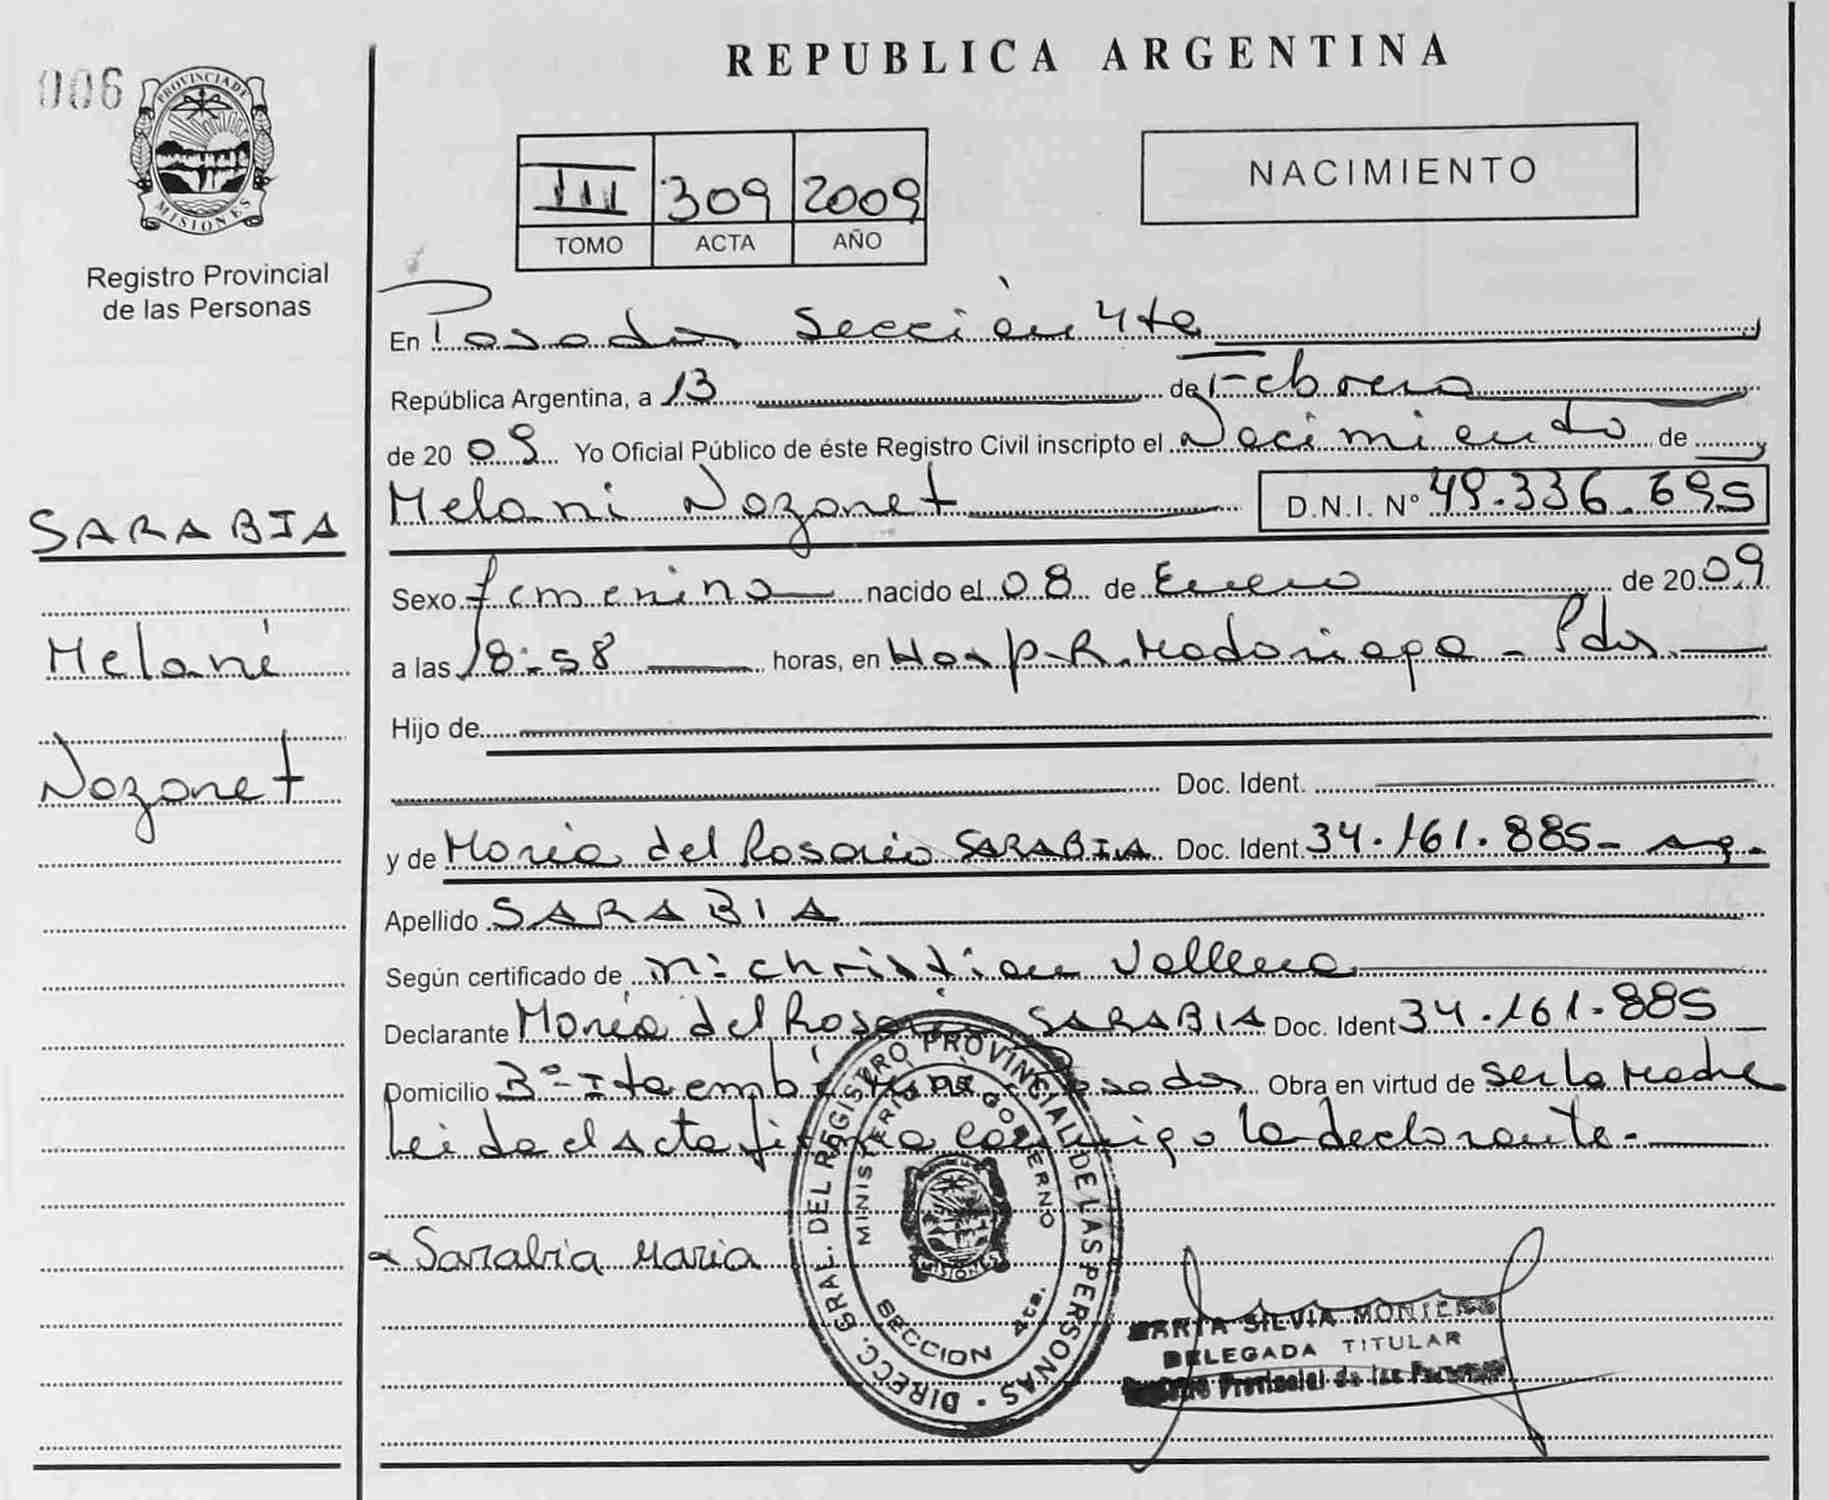 006
PROVINCIA DE
MISIONES
Registro Provincial
de las Personas
SARABIA
Melani
Nazaret
REPUBLICA ARGENTINA
III 309 2009
TOMO ACTA AÑO
NACIMIENTO
En Posadas Sección 4ta
República Argentina, a 13 de Febrero
de 2009 Yo Oficial Público de éste Registro Civil inscripto el Nacimiento de
Melani Nazaret D.N.I. Nº 49.336.695
Sexo femenino nacido el 08 de Enero de 2009
a las 18:58 horas, en Hosp. R. Madariaga - Pdas.
Hijo de
Doc. Ident.
y de María del Rosario SARABIA Doc. Ident. 34.161.885- arg.
Apellido SARABIA
Según certificado de christian
Declarante María del Rosario SARABIA Doc. Ident 34.161.885
Domicilio Bº- Itaembé Miní Posadas Obra en virtud de ser la madre
Leída el acta firma conmigo la declarante.-
Sarabia Maria
DIRECC. GRAL. DEL REGISTRO PROVINCIAL DE LAS PERSONAS
MINISTERIO DE GOBIERNO
MISIONES
SECCION 4ta.
SILVIA
DELEGADA TITULAR
Provincial de las Personas